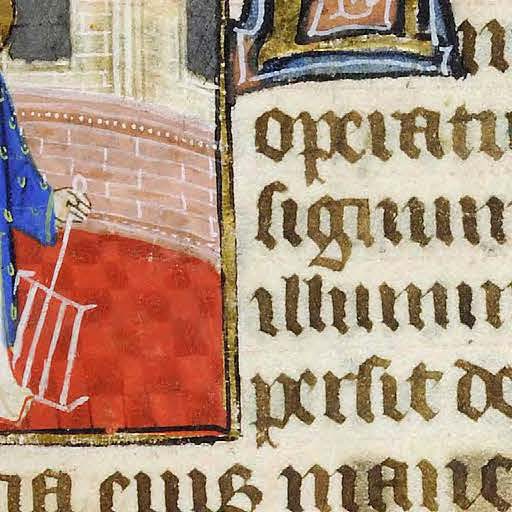 operatu
signum
illumin
persit de
na eius manc